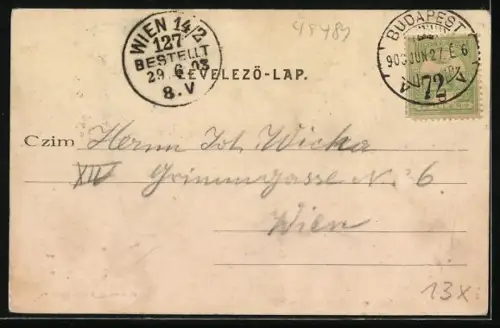 48489
WIEN 14/2
127
BESTELLT
29.6.03
8.V
BUDAPEST
903 JUN 27 E 6
72
LEVELEZÖ-LAP.
Czim Herrn Joh. Wicha
XII Grimmgasse N. 6
Wien
13x